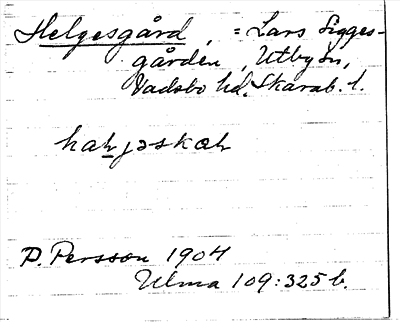 Helgesgård, = Lars Sigges-
gården, Utbyn,
Vadsbo hd. Skarab. l.
P. Persson 1904
Ulma 109:325 b.